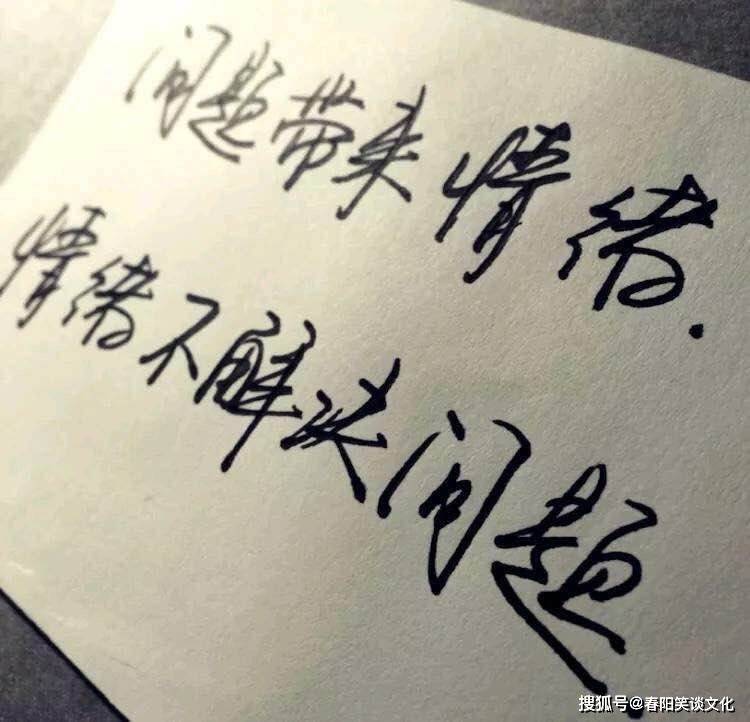 问题带来情绪.
情绪不解决问题
搜狐号@春阳笑谈文化